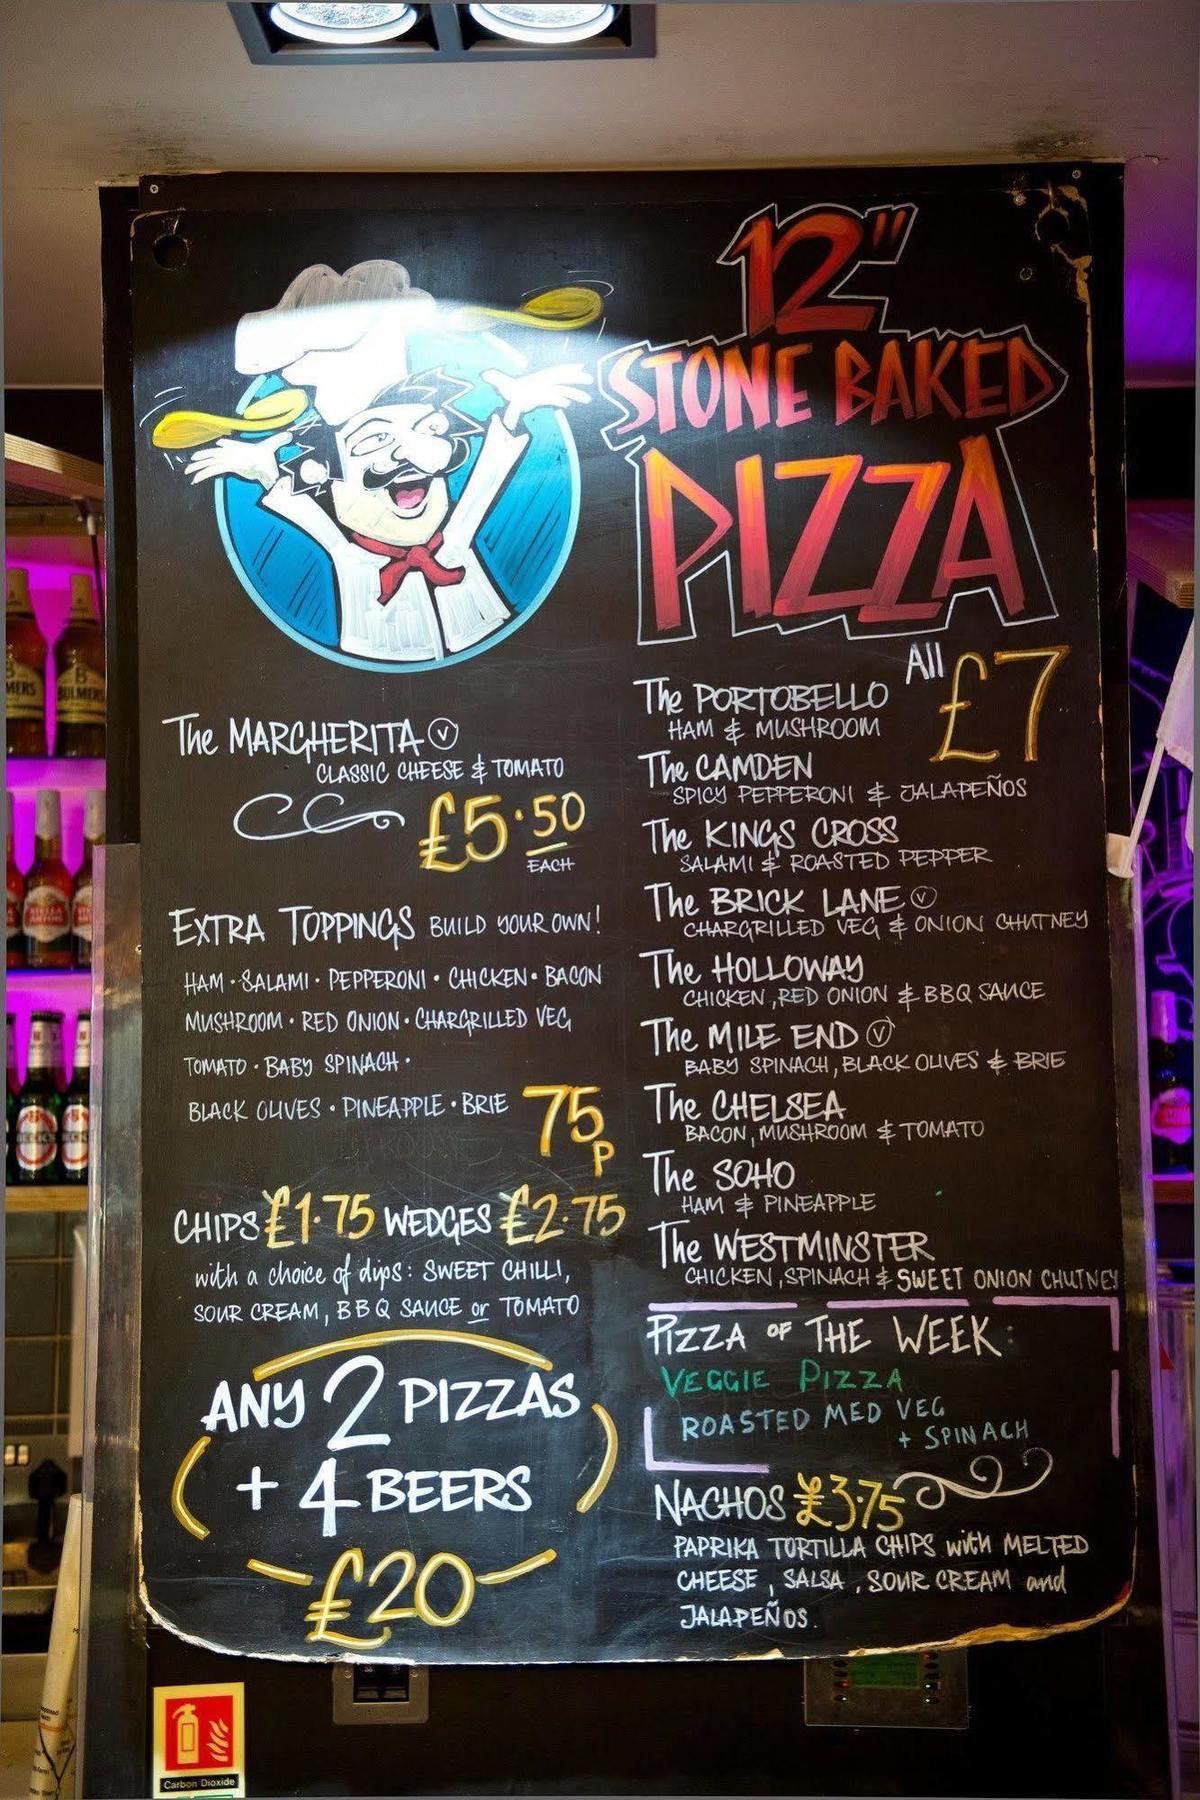 12"
STONE BAKED
PIZZA
All £7
The MARGHERITA V
CLASSIC CHEESE & TOMATO
£5.50
EACH
EXTRA TOPPINGS BUILD YOUR OWN!
HAM · SALAMI · PEPPERONI · CHICKEN · BACON
MUSHROOM · RED ONION · CHARGRILLED VEG
TOMATO · BABY SPINACH ·
BLACK OLIVES · PINEAPPLE · BRIE 75P
CHIPS £1.75 WEDGES £2.75
with a choice of dips: SWEET CHILLI,
SOUR CREAM, BBQ SAUCE or TOMATO
ANY 2 PIZZAS
+ 4 BEERS
£20
The PORTOBELLO
HAM & MUSHROOM
The CAMDEN
SPICY PEPPERONI & JALAPEÑOS
The KINGS CROSS
SALAMI & ROASTED PEPPER
The BRICK LANE V
CHARGRILLED VEG & ONION CHUTNEY
The HOLLOWAY
CHICKEN, RED ONION & BBQ SAUCE
The MILE END V
BABY SPINACH, BLACK OLIVES & BRIE
The CHELSEA
BACON, MUSHROOM & TOMATO
The SOHO
HAM & PINEAPPLE
The WESTMINSTER
CHICKEN, SPINACH & SWEET ONION CHUTNEY
PIZZA OF THE WEEK:
VEGGIE PIZZA
ROASTED MED VEG
+ SPINACH
NACHOS £3.75
PAPRIKA TORTILLA CHIPS with MELTED
CHEESE, SALSA, SOUR CREAM and
JALAPEÑOS.
BULMERS
STELLA ARTOIS
BECK'S
Carbon Dioxide